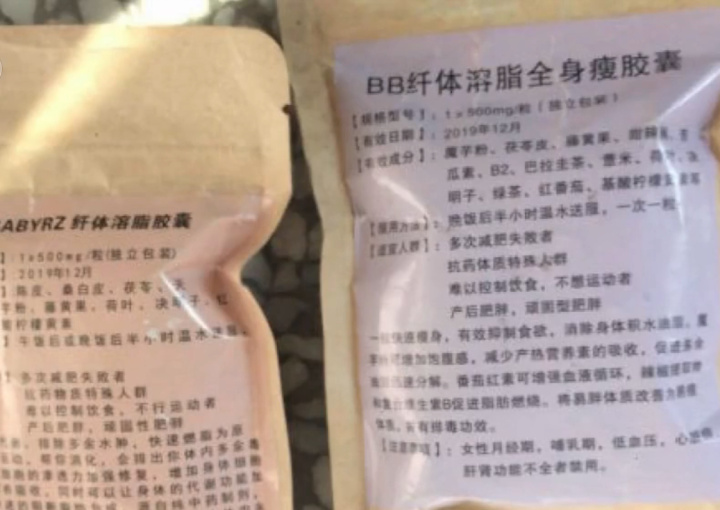 BB纤体溶脂全身瘦胶囊
【规格型号】：1×500mg/粒（独立包装）
【有效日期】：2019年12月
【有效成分】：魔芋粉、茯苓皮、藤黄果、甜辣
瓜素、B2、巴拉圭茶、薏米、荷叶、决
明子、绿茶、红番茄、基酸柠檬
【服用方法】：晚饭后半小时温水送服，一次一粒
【适宜人群】：多次减肥失败者
抗药体质特殊人群
难以控制饮食，不想运动者
产后肥胖，顽固型肥胖
一粒快速瘦身，有效抑制食欲，消除身体积水油脂。魔
芋粉可增加饱腹感，减少产热营养素的吸收，促进多余
脂肪迅速分解。番茄红素可增强血液循环，辣椒提取物
和复合维生素B促进脂肪燃烧。将易胖体质改善为易瘦
体质，并有排毒功效。
：女性月经期，哺乳期，低血压，心
肝肾功能不全者禁用。
ABYRZ 纤体溶脂胶囊
】：1×500mg/粒(独立包装)
】：2019年12月
】：陈皮、桑白皮、茯苓、天
芋粉、藤黄果、荷叶、决明子、红
酸柠檬黄素
】：午饭后或晚饭后半小时温水送服。
】：多次减肥失败者
抗药物质特殊人群
难以控制饮食，不行运动者
产后肥胖，顽固性肥胖
排除多余水肿，快速燃脂为原
动，帮你消化，会排出你体内多余毒
胞的渗透力加强修复，增加身体细胞
吸收，同时可以让身体的代谢功能加
蛋白纯中药制剂，